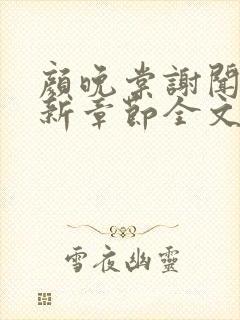 顏晚棠謝聞
新章節全文
雪夜幽靈